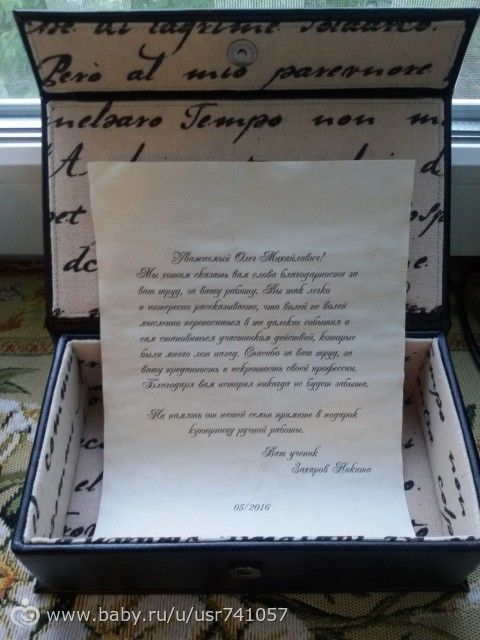 che di lagrime
Però al mio parervore
Tempo non m
Уважаемый Олег Михайлович!
Мы хотим сказать вам слова благодарности за
ваш труд, за вашу работу. Вы так легко
и интересно рассказываете, что волей не волей
мысленно переноситься в те далекие события и
сам становишься участником действий, которые
были много лет назад. Спасибо за ваш труд, за
вашу преданность и искренность своей профессии.
Благодаря вам история никогда не будет забыта.
На память от нашей семьи примите в подарок
купюрницу ручной работы.
Ваш ученик
Захаров Никита
05/2016
www.baby.ru/u/usr741057